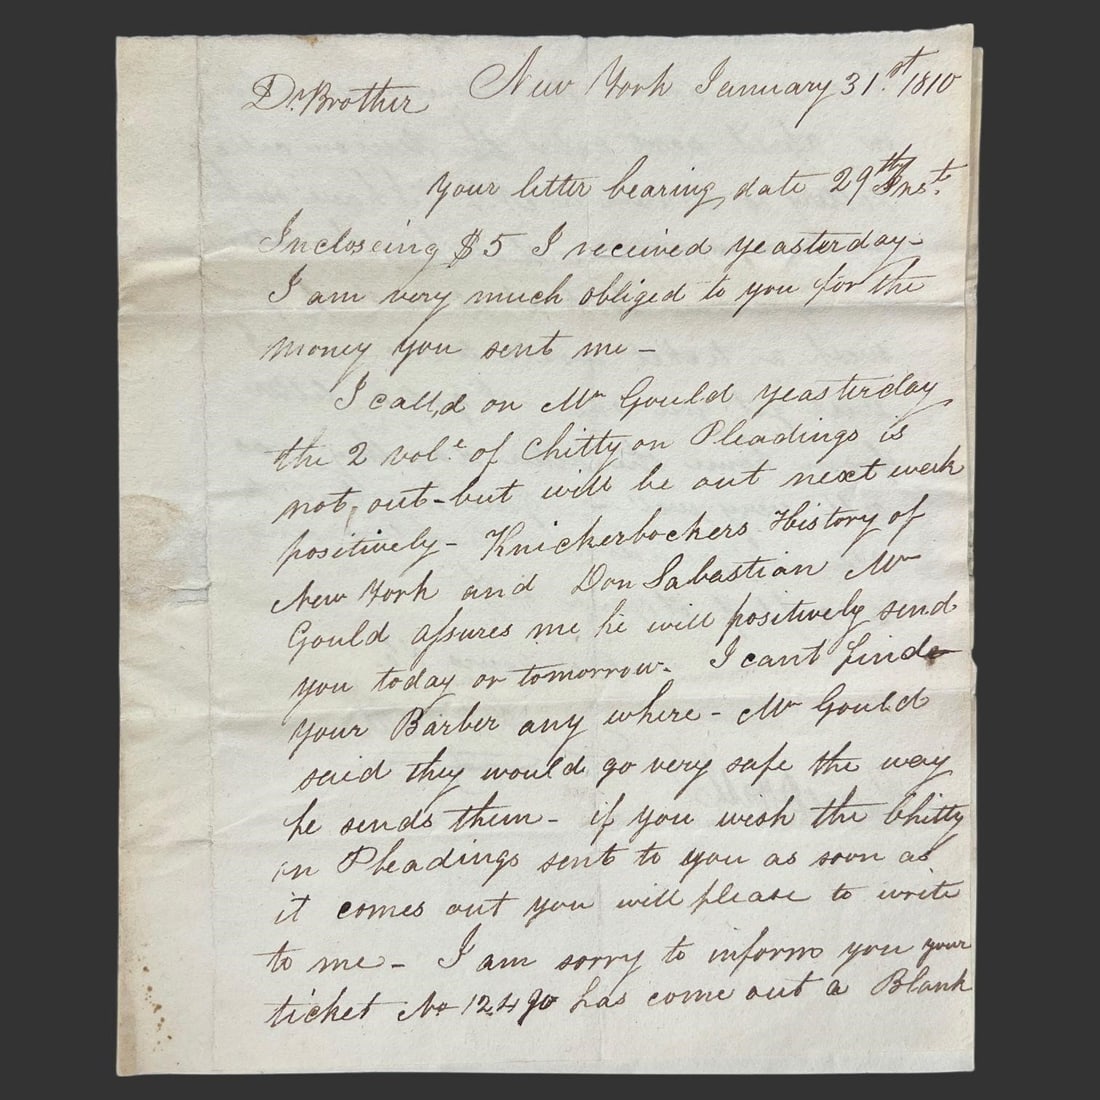 Dr. Brother New York January 31.st 1810
Your letter bearing date 29th Inst.
Incloseing $5 I received yeasterday-
I am very much obliged to you for the
money you sent me -
I call,d on Mr Gould yeasterday
the 2 vol.e of Chitty on Pleadings is
not, out - but will be out next week
positively - Knickerbockers History of
New York and Don Sabastian Mr
Gould assures me he will positively send
you today or tomorrow. I cant find
your Barber any where - Mr Gould
said they would go very safe the way
he sends them - if you wish the Chitty
on Pleadings sent to you as soon as
it comes out you will please to write
to me - I am sorry to inform you your
ticket No 12490 has come out a Blank